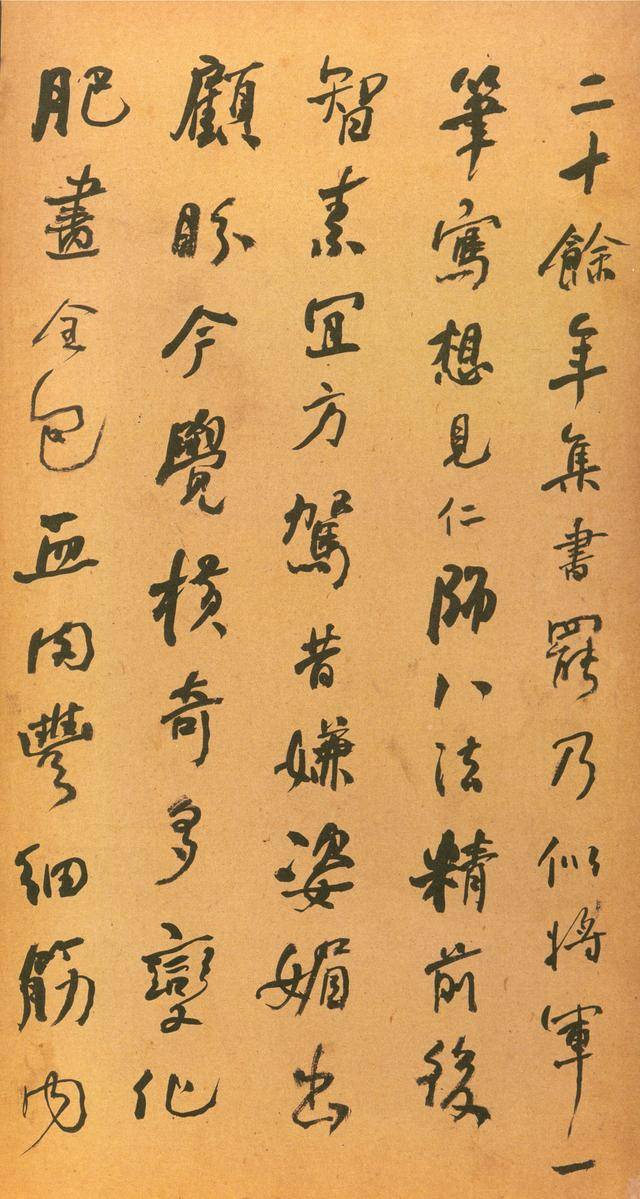 二十餘年集書罷乃似將軍一
筆寫想見仁師八法精前後
智素宜方駕昔嫌姿媚出
顧盼今覺橫奇多變化
肥畫全包血肉豐細筋內